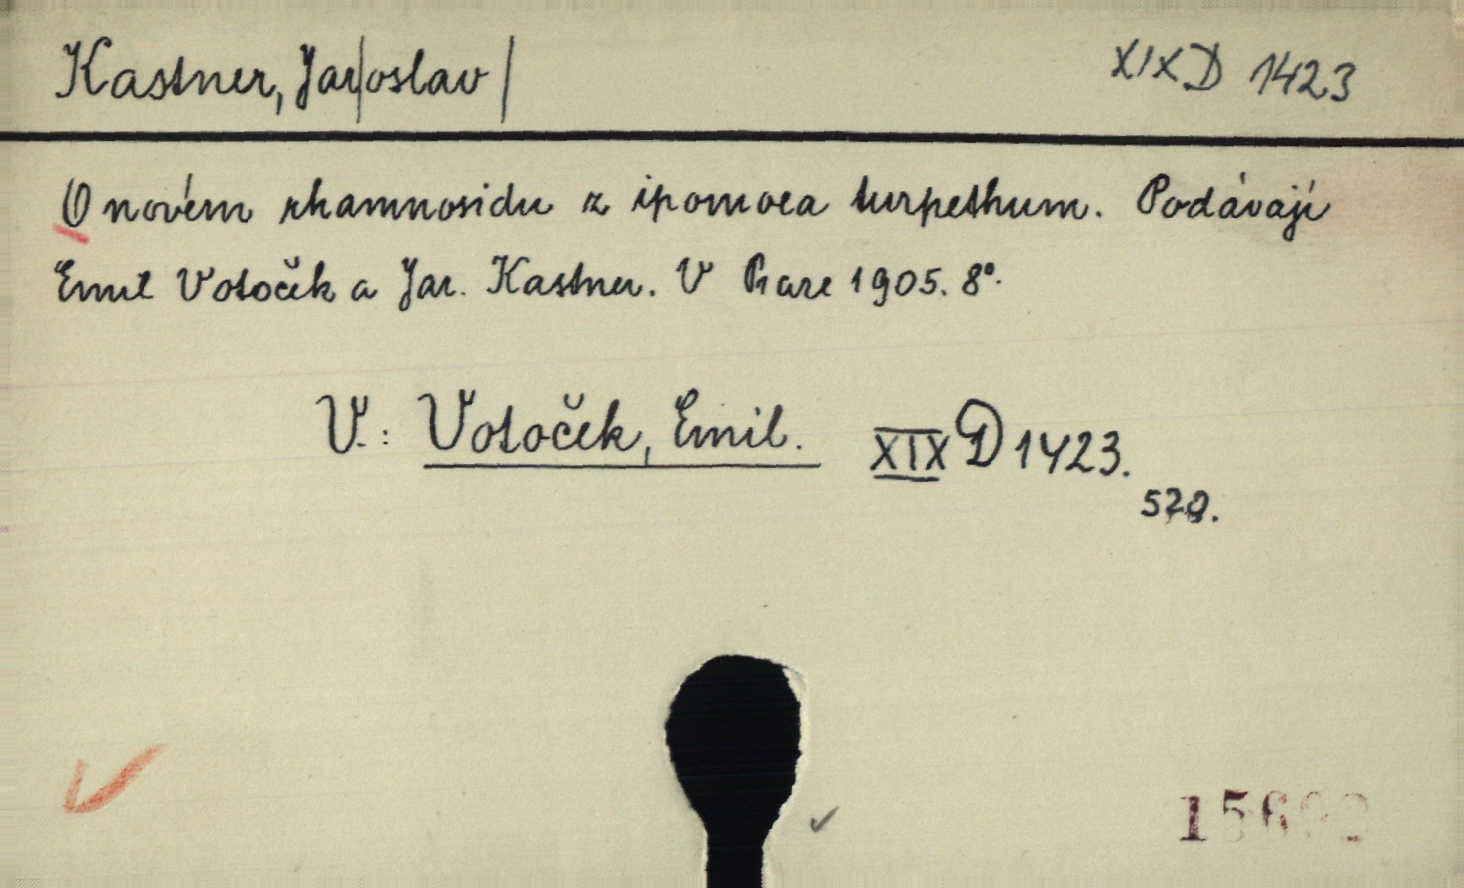 Kastner, Jar|oslav| XIX D 1423
O novém rhamnosidu z ipomoea turpethum. Podávají
Emil Votoček a Jar. Kastner. V Praze 1905. 8°.
V.: Votoček, Emil. XIX D 1423.
520.